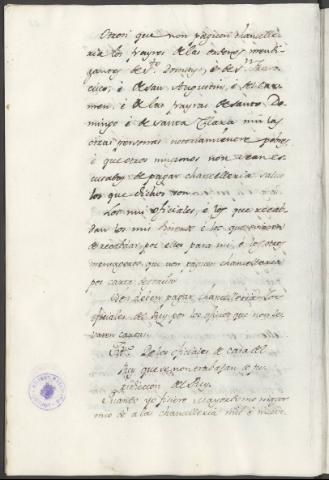 Otrosi que non paguen chancelle
ria los frayres de las ordenes mendi
gantes de Sto. Domingo, é de Sn. Fran
cisco, é de San Augustin, é del Car
men, é de las frayras de Santo Do
mingo é de Santa Clara nin las
otras personas notoriamente pobres
é que otros ningunos non sean es
cusados de pagar chancelleria salvo
los que dichos son.
Los mis oficiales, é los que recab
dan los mis é los que
de recabdar por ellos para mi, é los otros
menesteros, que non paguen chancelleria
por carta
deven pagar chancelleria los
oficiales del Rey por los oficios que non lie
varen carta.
De los oficiales de casa del
Rey que se non trabajan de ju
risdiccion del Rey.
Quando yo ficiere mayordomo mayor
que dé a la chancelleria mill é